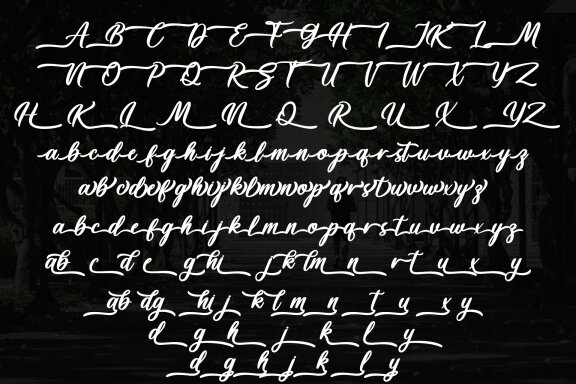 A B C D E F G H I J K L M
N O P Q R S T U V W X Y Z
H K L M N Q R U X Y Z
a b c d e f g h i j k l m n o p q r s t u v w x y z
a b c d e f g h i j k l m n o p q r s t u v w x y z
a b c d e f g h i j k l m n o p q r s t u v w x y z
a b c d e g h j k l m n r t u x y
a b d g h j k l m n t u x y
d g h j k l y
d g h j k l y